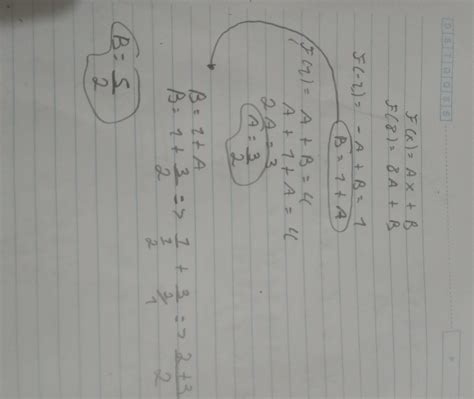 F(x) = Ax + B
F(8) = 8A + B
F(-1) = -A + B = 1
B = 1 + A
F(1) = A + B = 4
A + 1 + A = 4
2A = 3
A = 3/2
B = 1 + A
B = 1 + 3/2 => 1/1 + 3/2 => 2+3/2
B = 5/2